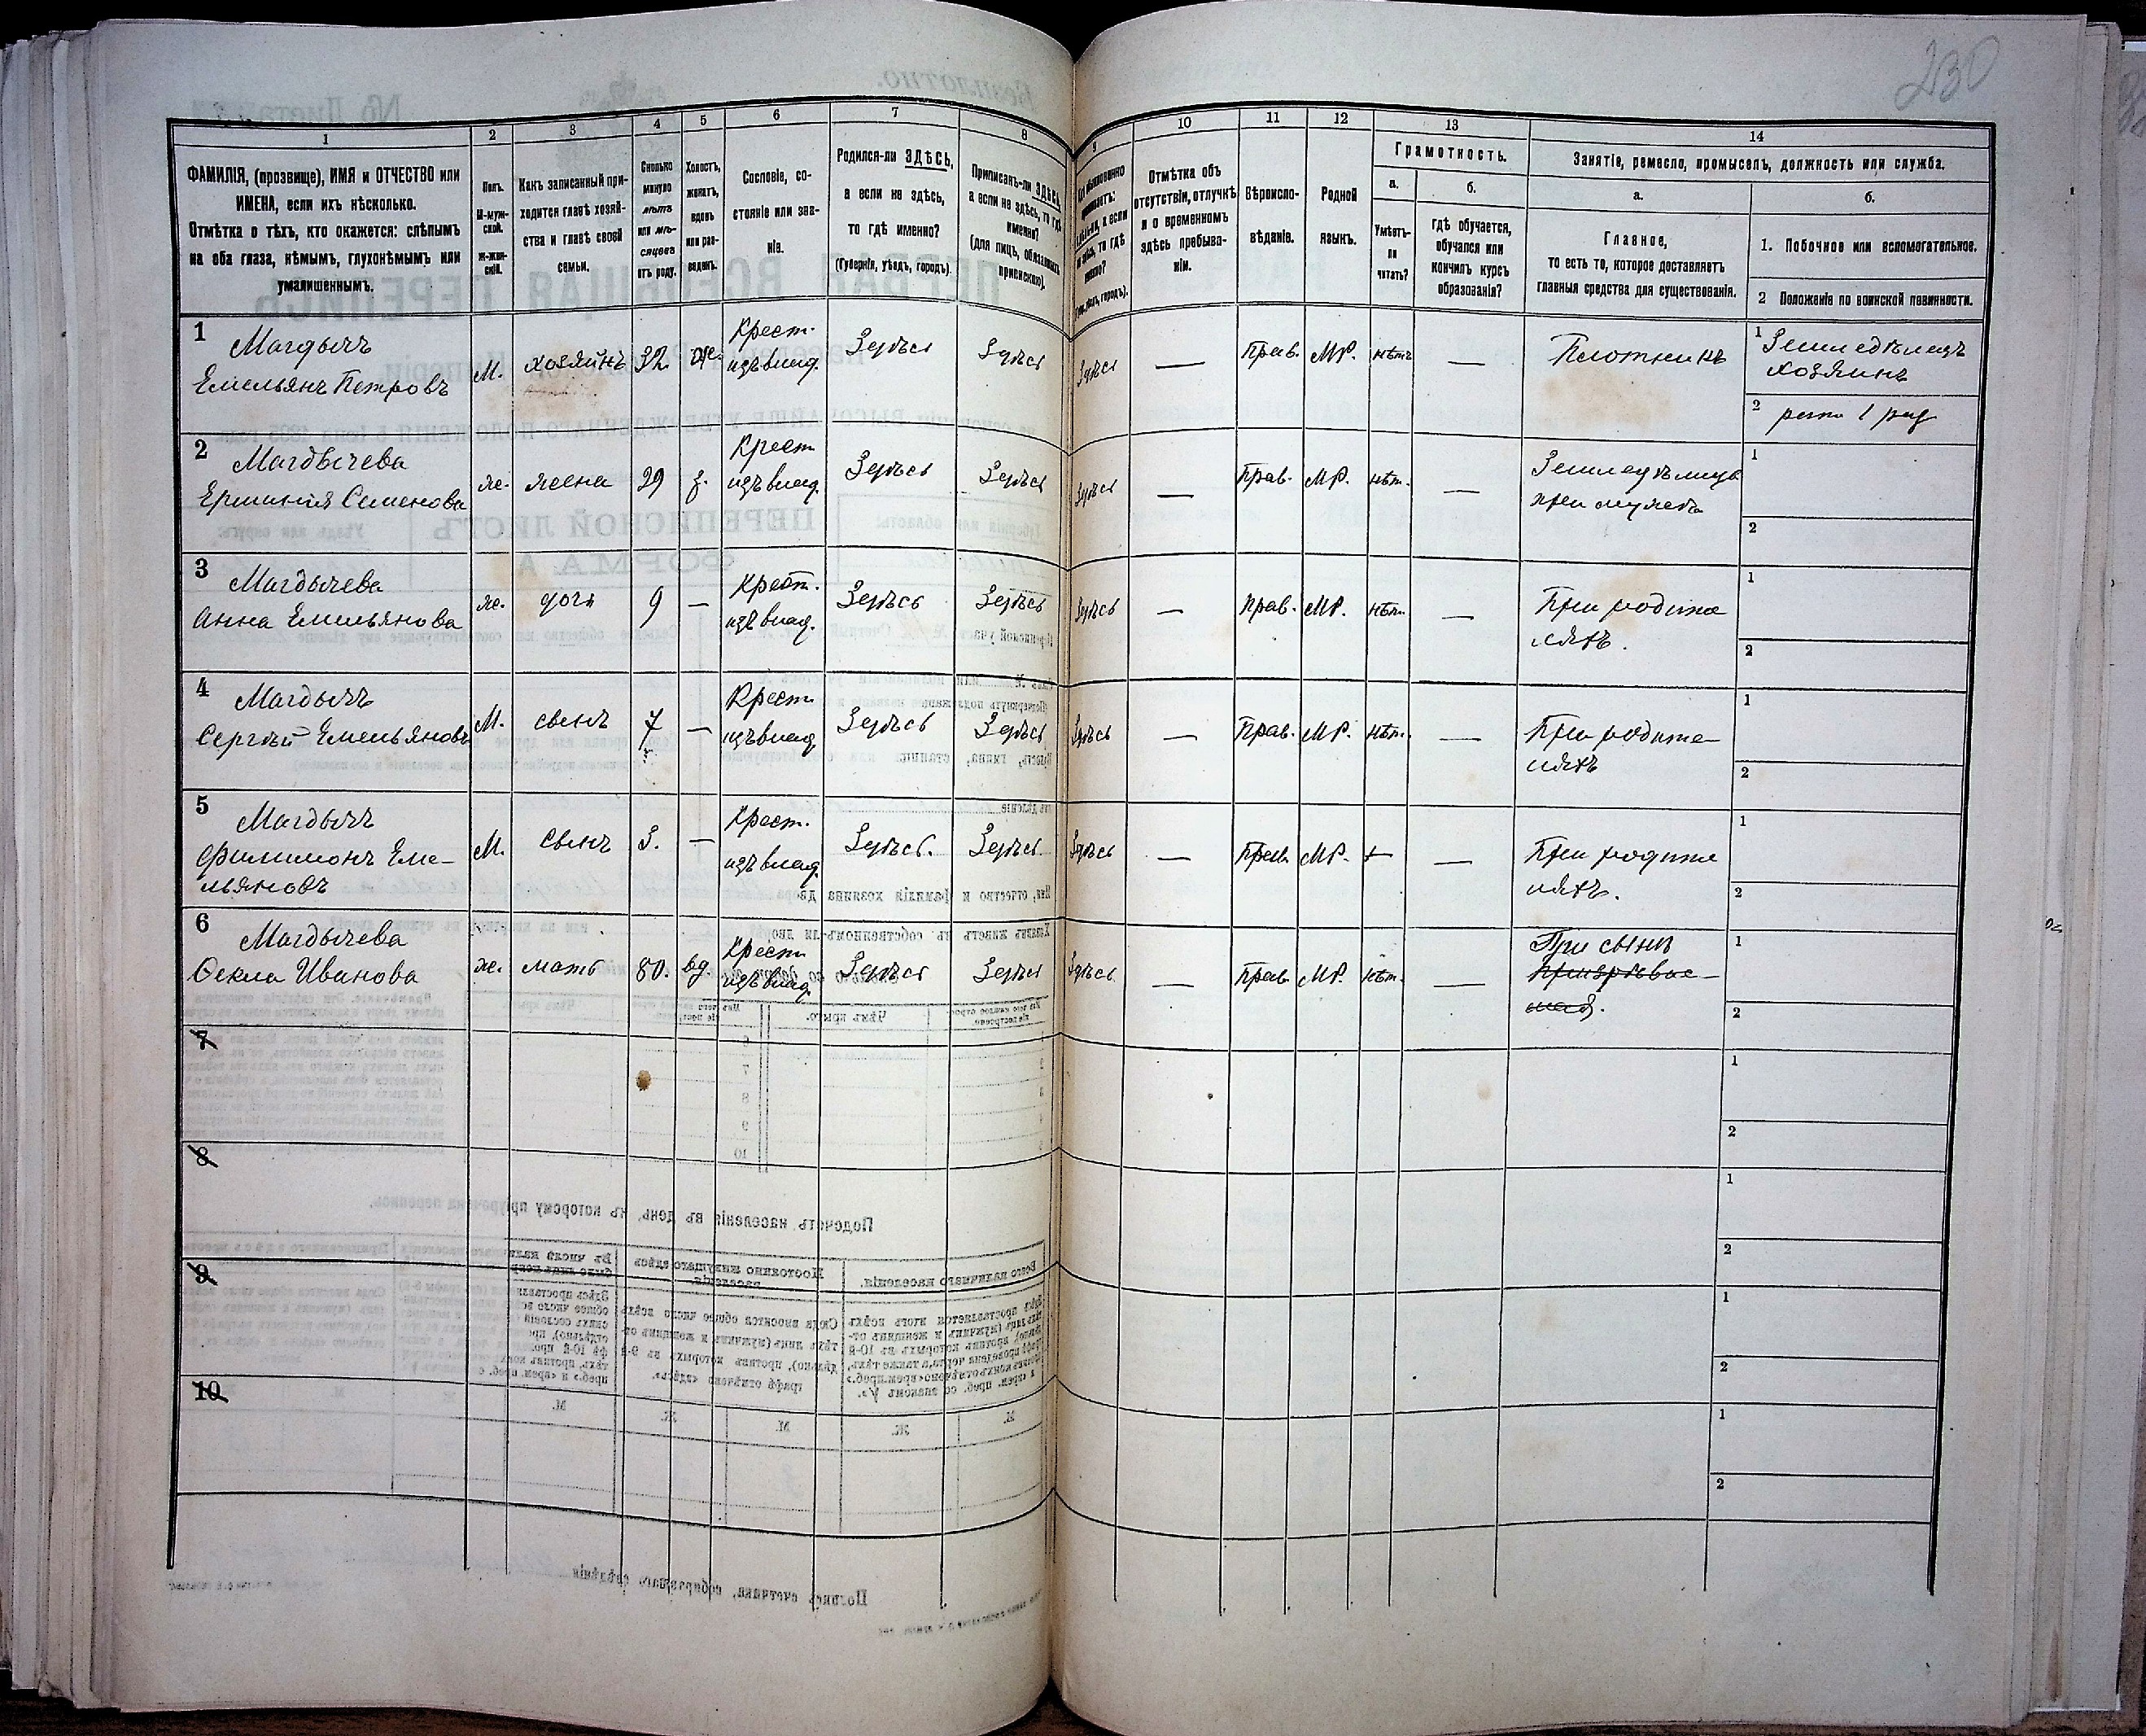 230
1 2 3 4 5 6 7 8 9 10 11 12 13 14
ФАМИЛІЯ, (прозвище), ИМЯ и ОТЧЕСТВО или
ИМЕНА, если ихъ нѣсколько.
Отмѣтка о тѣхъ, кто окажется: слѣпымъ
на оба глаза, нѣмымъ, глухонѣмымъ или
умалишеннымъ.
Полъ.
М-муж-
ской.
Ж-жен-
скій.
Какъ записанный при-
ходится главѣ хозяй-
ства и главѣ своей
семьи.
Сколько
минуло
лѣтъ
или мѣ-
сяцевъ
отъ роду.
Холостъ,
женатъ,
вдовъ
или раз-
веденъ.
Сословіе, со-
стояніе или зва-
ніе.
Родился-ли ЗДѢСЬ,
а если не здѣсь,
то гдѣ именно?
(Губернія, уѣздъ, городъ).
Приписанъ-ли ЗДѢСЬ,
а если не здѣсь, то гдѣ
именно?
(для лицъ, обязанныхъ
припискою).
Отмѣтка объ
отсутствіи, отлучкѣ
и о временномъ
здѣсь пребыва-
ніи.
Вѣроиспо-
вѣданіе.
Родной
языкъ.
Грамотность.
а.
Умѣетъ-
ли
читать?
б.
Гдѣ обучается,
обучался или
кончилъ курсъ
образованія?
Занятіе, ремесло, промыселъ, должность или служба.
а.
Главное,
то есть то, которое доставляетъ
главныя средства для существованія.
б.
1. Побочное или вспомогательное.
2 Положеніе по воинской повинности.
1 Магдычъ
Емельянъ Петровъ
М. хозяинъ 32 же.
Крест.
изъ влад.
Здѣсь Здѣсь Здѣсь — Прав. МР. нѣтъ — Плотникъ
1 Земледѣлецъ
хозяинъ
2 ратн 1 раз
2 Магдычева
Ерминія Семенова
же. жена 29 з.
Крест
изъ влад.
Здѣсь Здѣсь Здѣсь — Прав. МР. нѣт. —
Земледѣлица
при мужѣ
1
2
3 Магдычева
Анна Емильянова
же. дочь 9 —
Крест.
изъ влад.
Здѣсь Здѣсь Здѣсь — Прав. МР. нѣт. —
При родите
ляхъ.
1
2
4 Магдычъ
Сергѣй Емельяновъ
М. сынъ 7 —
Крест
изъ влад.
Здѣсь Здѣсь Здѣсь — Прав. МР. нѣт. —
При родите—
ляхъ
1
2
5 Магдычъ
Филимонъ Еме—
льяновъ
М. Сынъ 3. —
Крест.
изъ влад.
Здѣсь. Здѣсь. Здѣсь — Прав. МР. + —
При родите
ляхъ.
1
2
6 Магдычева
Ѳекла Иванова
же. мать 80. вд.
Крест
изъ влад.
Здѣсь Здѣсь Здѣсь — Прав. МР. нѣт. —
При сынѣ
1
2
7
1
2
8
1
2
9
1
2
10
1
2